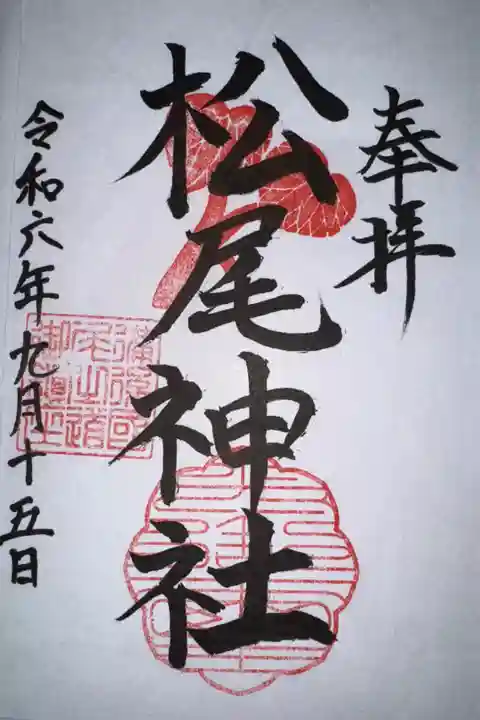 奉拝
松尾神社
令和六年九月十五日